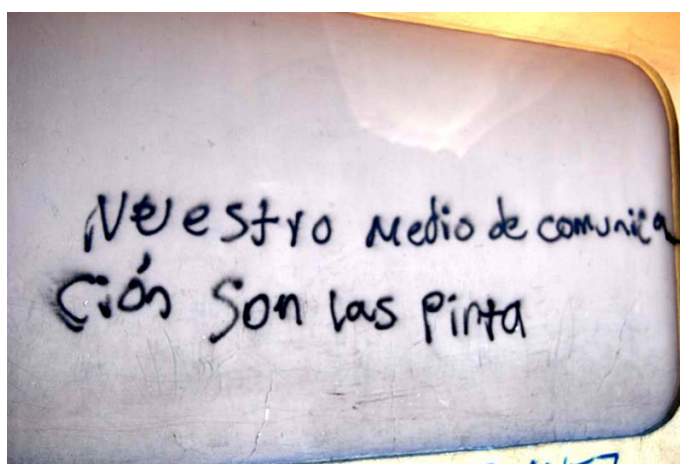 Nuestro medio de comunica
ción son las pinta